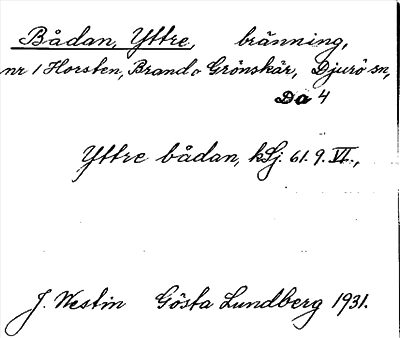 Bådan, Yttre, bränning,
nr 1 Horsten, Brand o Grönskär, Djurö sn,
Da 4
Yttre bådan, kSj. 61. 9. VI.,
J. Westin Gösta Lundberg 1931.